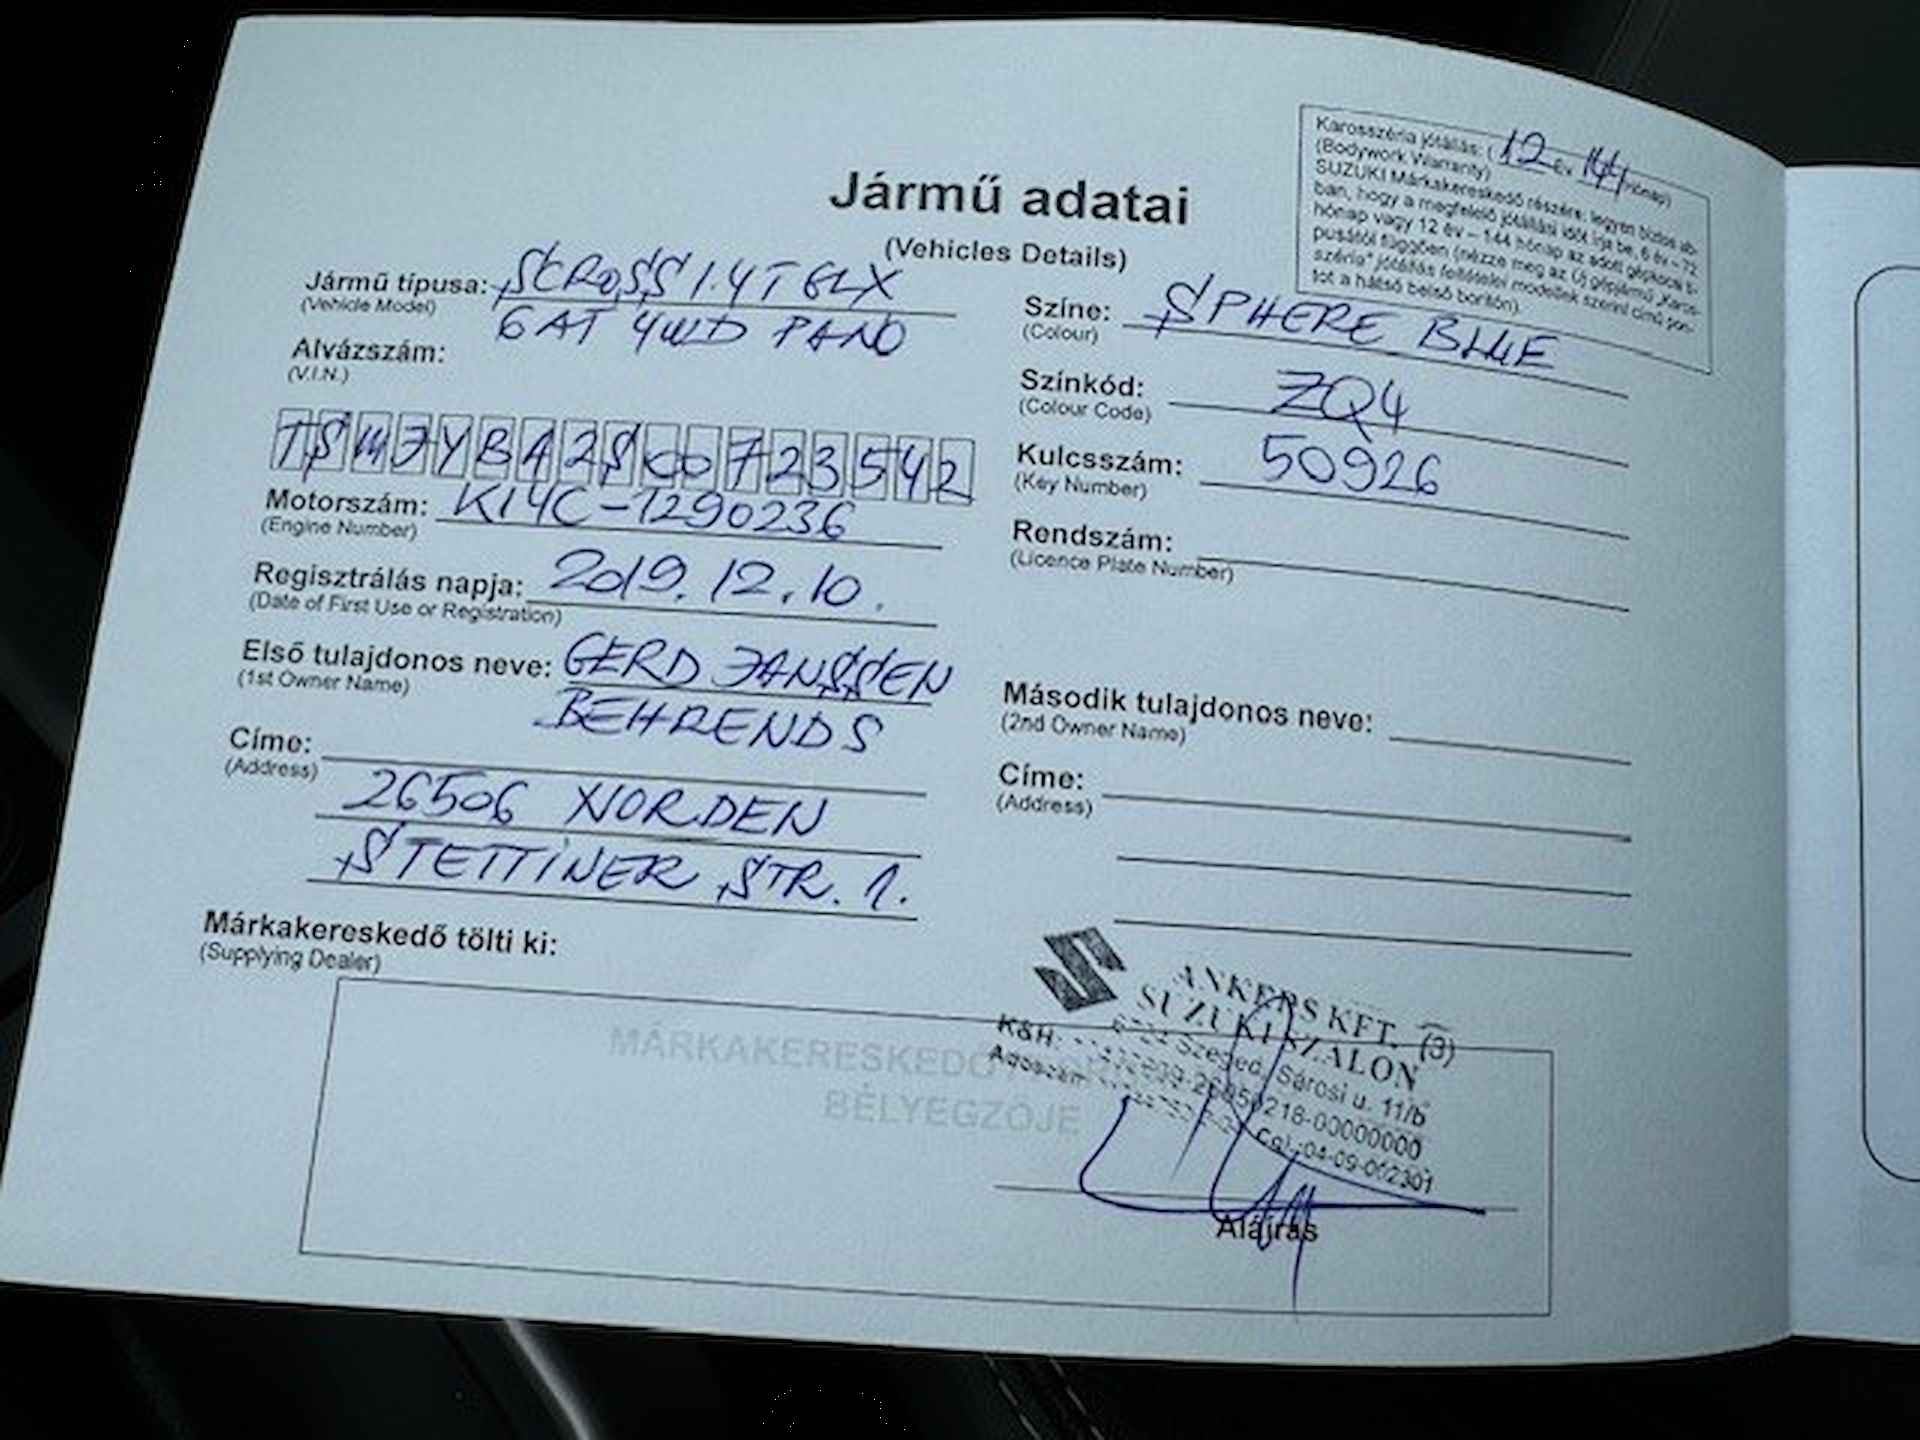 Karosszéria jótállás: (12 év 144 hónap)
(Bodywork Warranty)
SUZUKI Márkakereskedő részére: legyen biztos ab-
ban, hogy a megfelelő jótállási időt írja be, 6 év – 72
hónap vagy 12 év – 144 hónap az adott gépkocsi tí-
pusától függően (nézze meg az Új gépjármű „Karos-
széria" jótállás feltételei modellek szerint című pon-
tot a hátsó belső borítón).
Jármű adatai
(Vehicles Details)
Jármű típusa: SCROSS 1.4T GLX
(Vehicle Model) 6AT 4WD PANO
Alvázszám:
(V.I.N.)
TSMJYBA2S00723542
Motorszám: K14C-1290236
(Engine Number)
Regisztrálás napja: 2019.12.10.
(Date of First Use or Registration)
Első tulajdonos neve: GERD JANSSEN
(1st Owner Name) BEHRENDS
Címe:
(Address)
26506 NORDEN
STETTINER STR. 1.
Színe: SPHERE BLUE
(Colour)
Színkód: ZQ4
(Colour Code)
Kulcsszám: 50926
(Key Number)
Rendszám:
(Licence Plate Number)
Második tulajdonos neve:
(2nd Owner Name)
Címe:
(Address)
Márkakereskedő tölti ki:
(Supplying Dealer)
MÁRKAKERESKEDŐ
BÉLYEGZŐJE
ANKERS KFT. (3)
SUZUKI SZALON
Szeged, Sárosi u. 11/b
K&H:
Adószám
Cgj.:04-09-002301
Aláírás